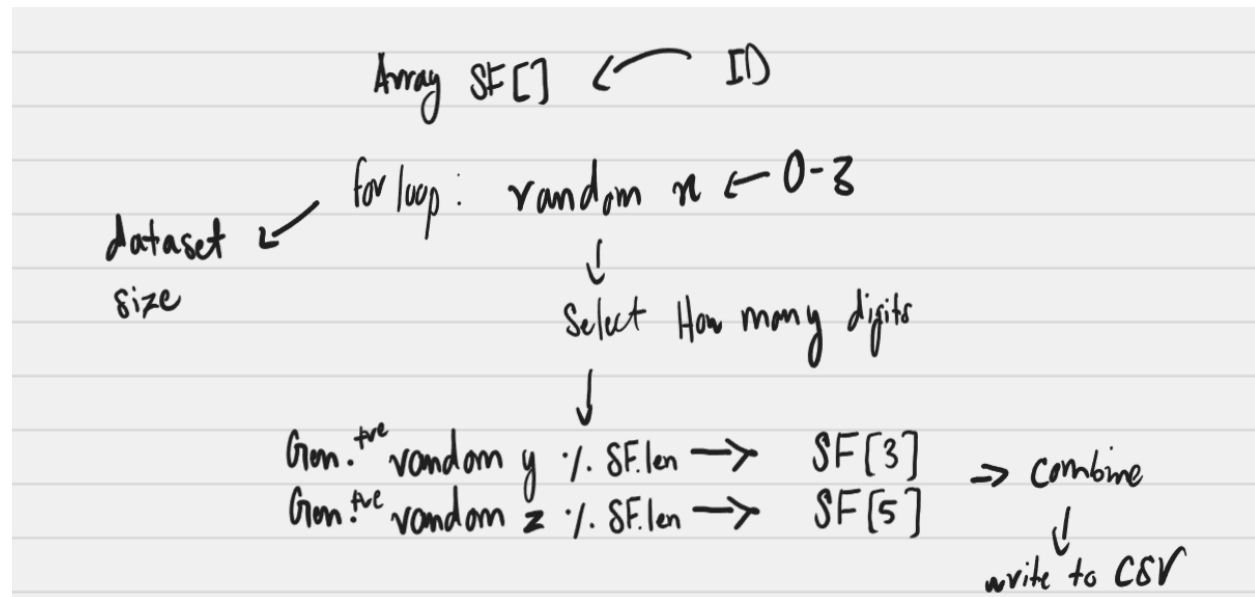 Array SF[] ← ID
for loop: random n ← 0-3
dataset size
Select How many digits
Gen. +ve random y % SF.len → SF[3]
Gen. +ve random z % SF.len → SF[5]
→ Combine
write to CSV